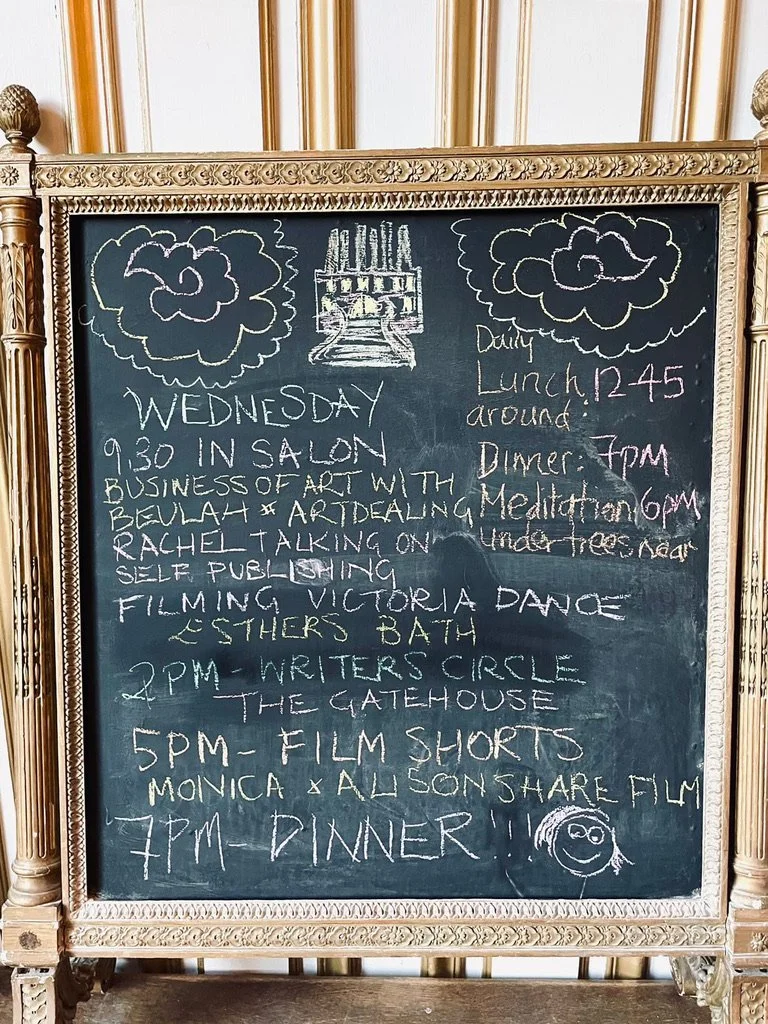 WEDNESDAY
9.30 IN SALON
BUSINESS OF ART WITH
BEULAH & ARTDEALING
RACHEL TALKING ON
SELF PUBLISHING
FILMING VICTORIA DANCE
ESTHERS BATH
2PM - WRITERS CIRCLE
THE GATEHOUSE
5PM - FILM SHORTS
MONICA & ALISON SHARE FILM
7PM - DINNER!!!
Daily
Lunch 12.45
around:
Dinner: 7pm
Meditation 6pm
under trees near